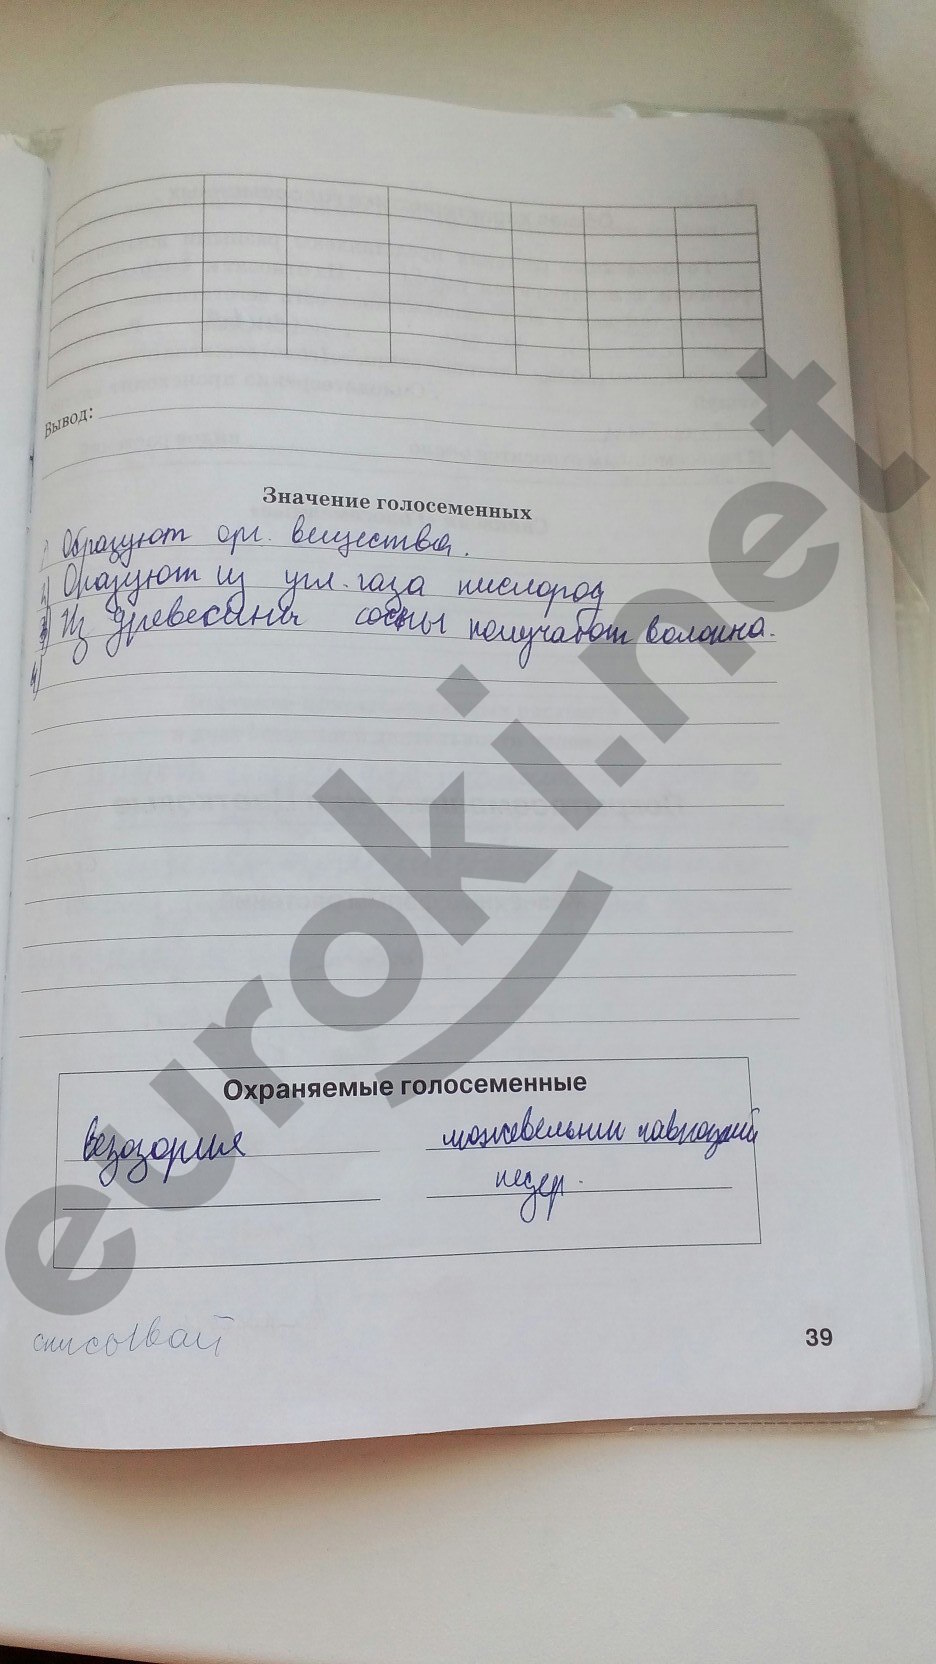 Вывод:
Значение голосеменных
1) Образуют орг. вещества.
2) Оразуют из угл. газа кислород
3) Из древесины сосны получают волокна.
4)
Охраняемые голосеменные
можевельник
кедр.
списывай
39
euroki.net